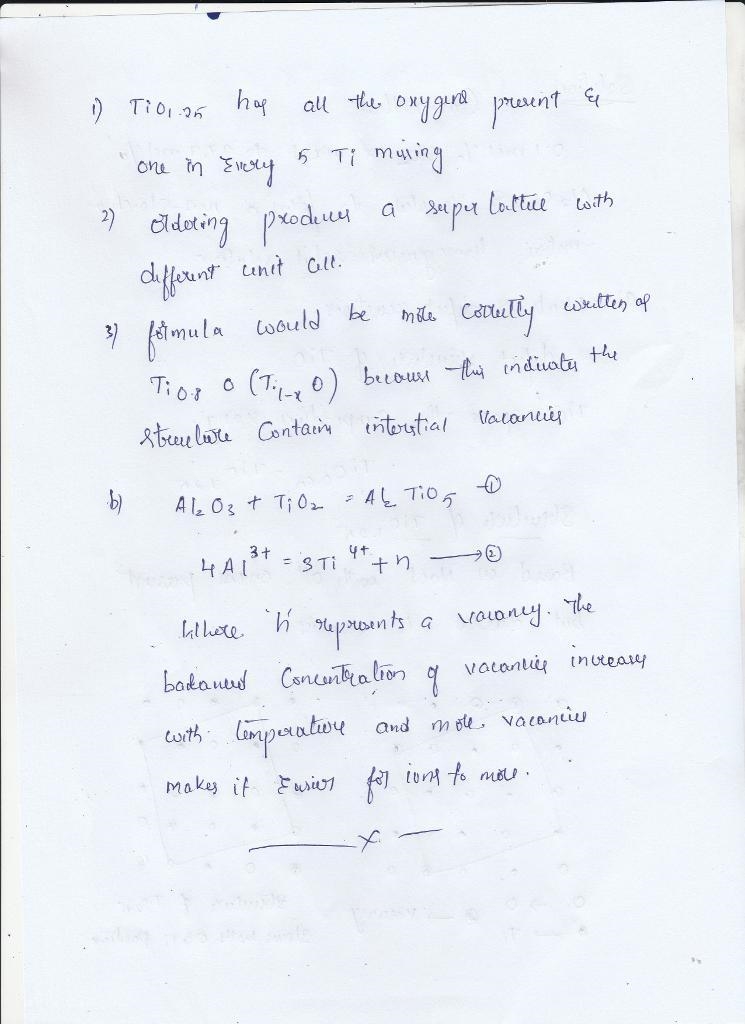 1) TiO1.25 has all the oxygens present &
one in Every 5 Ti missing
2) Ordering produces a super lattice with
different unit cell.
3) formula would be more correctly written as
Ti0.8 O (Ti1-x O) because this indicates the
structure Contains interstial Vacancies
b) Al2O3 + TiO2 = Al2 TiO5 —①
4Al3+ = 3Ti4+ + n ⟶②
Where 'n' represents a vacancy. The
balanced Concentration of vacancies increases
with temperature and more vacancies
makes it Easier for ions to move.
x